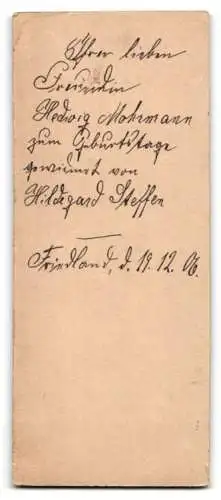 Ihrer lieben
Freundin
Hedwig Mohrmann
zum Geburtstage
gewidmet von
Hildegard Steffen
Friedland, d. 19. 12. 06.